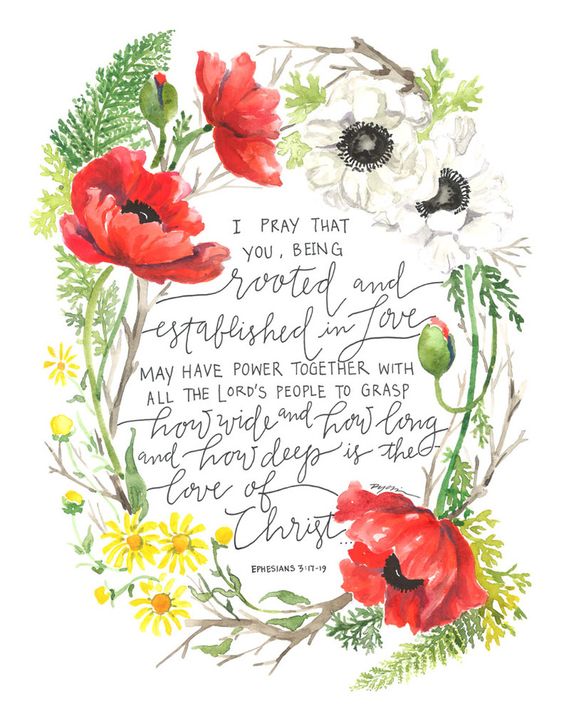 I PRAY THAT
YOU, BEING
rooted and
established in Love
MAY HAVE POWER TOGETHER WITH
ALL THE LORD'S PEOPLE TO GRASP
how wide and how long
and how deep is the
love of
Christ...
EPHESIANS 3:17-19